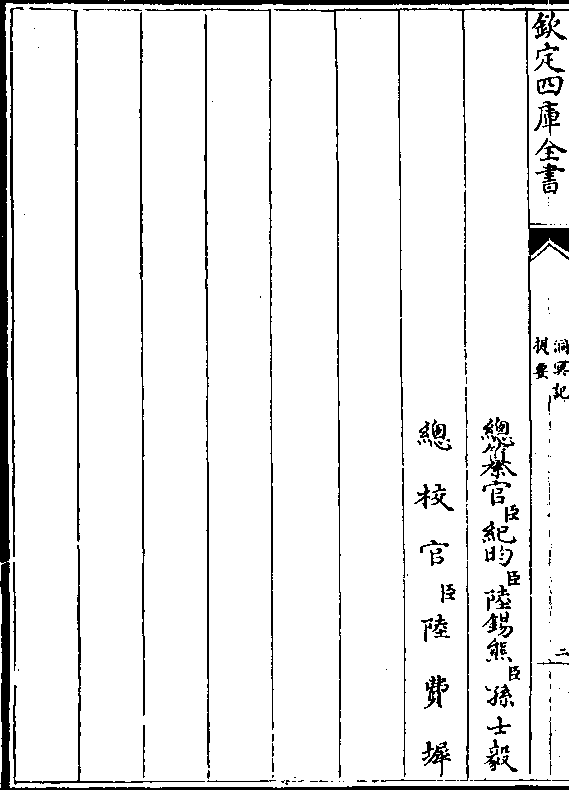 欽定四庫全書
洞冥記
提要
二
總纂官臣紀昀臣陸錫熊臣孫士毅
總校官臣陸費墀